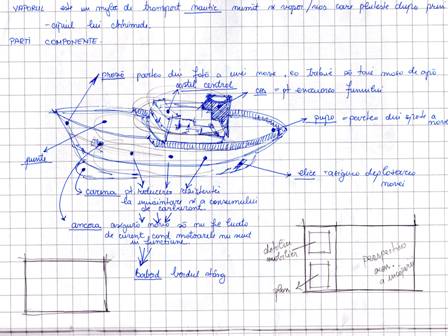 VAPORUL este un mijloc de transport nautic numit si vapor/nos care pluteste dupa prin-
-cipiul lui Arhimede.
PARTI COMPONENTE
prova partea din fata a unei nave, ea trebuie sa taie masa de apa
castel central
cos - pt. evacuarea fumului
pupa - partea din spate a navei
punte
elice - asigura deplasarea
navei
carena pt. reducerea rezistentei
la inaintare si a consumului
de carburant
ancora asigura navei sa nu fie luata
de curent cand motoarele nu sunt
in functiune
Babord bordul stang
detaliu
mobilier
plan
perspectiva